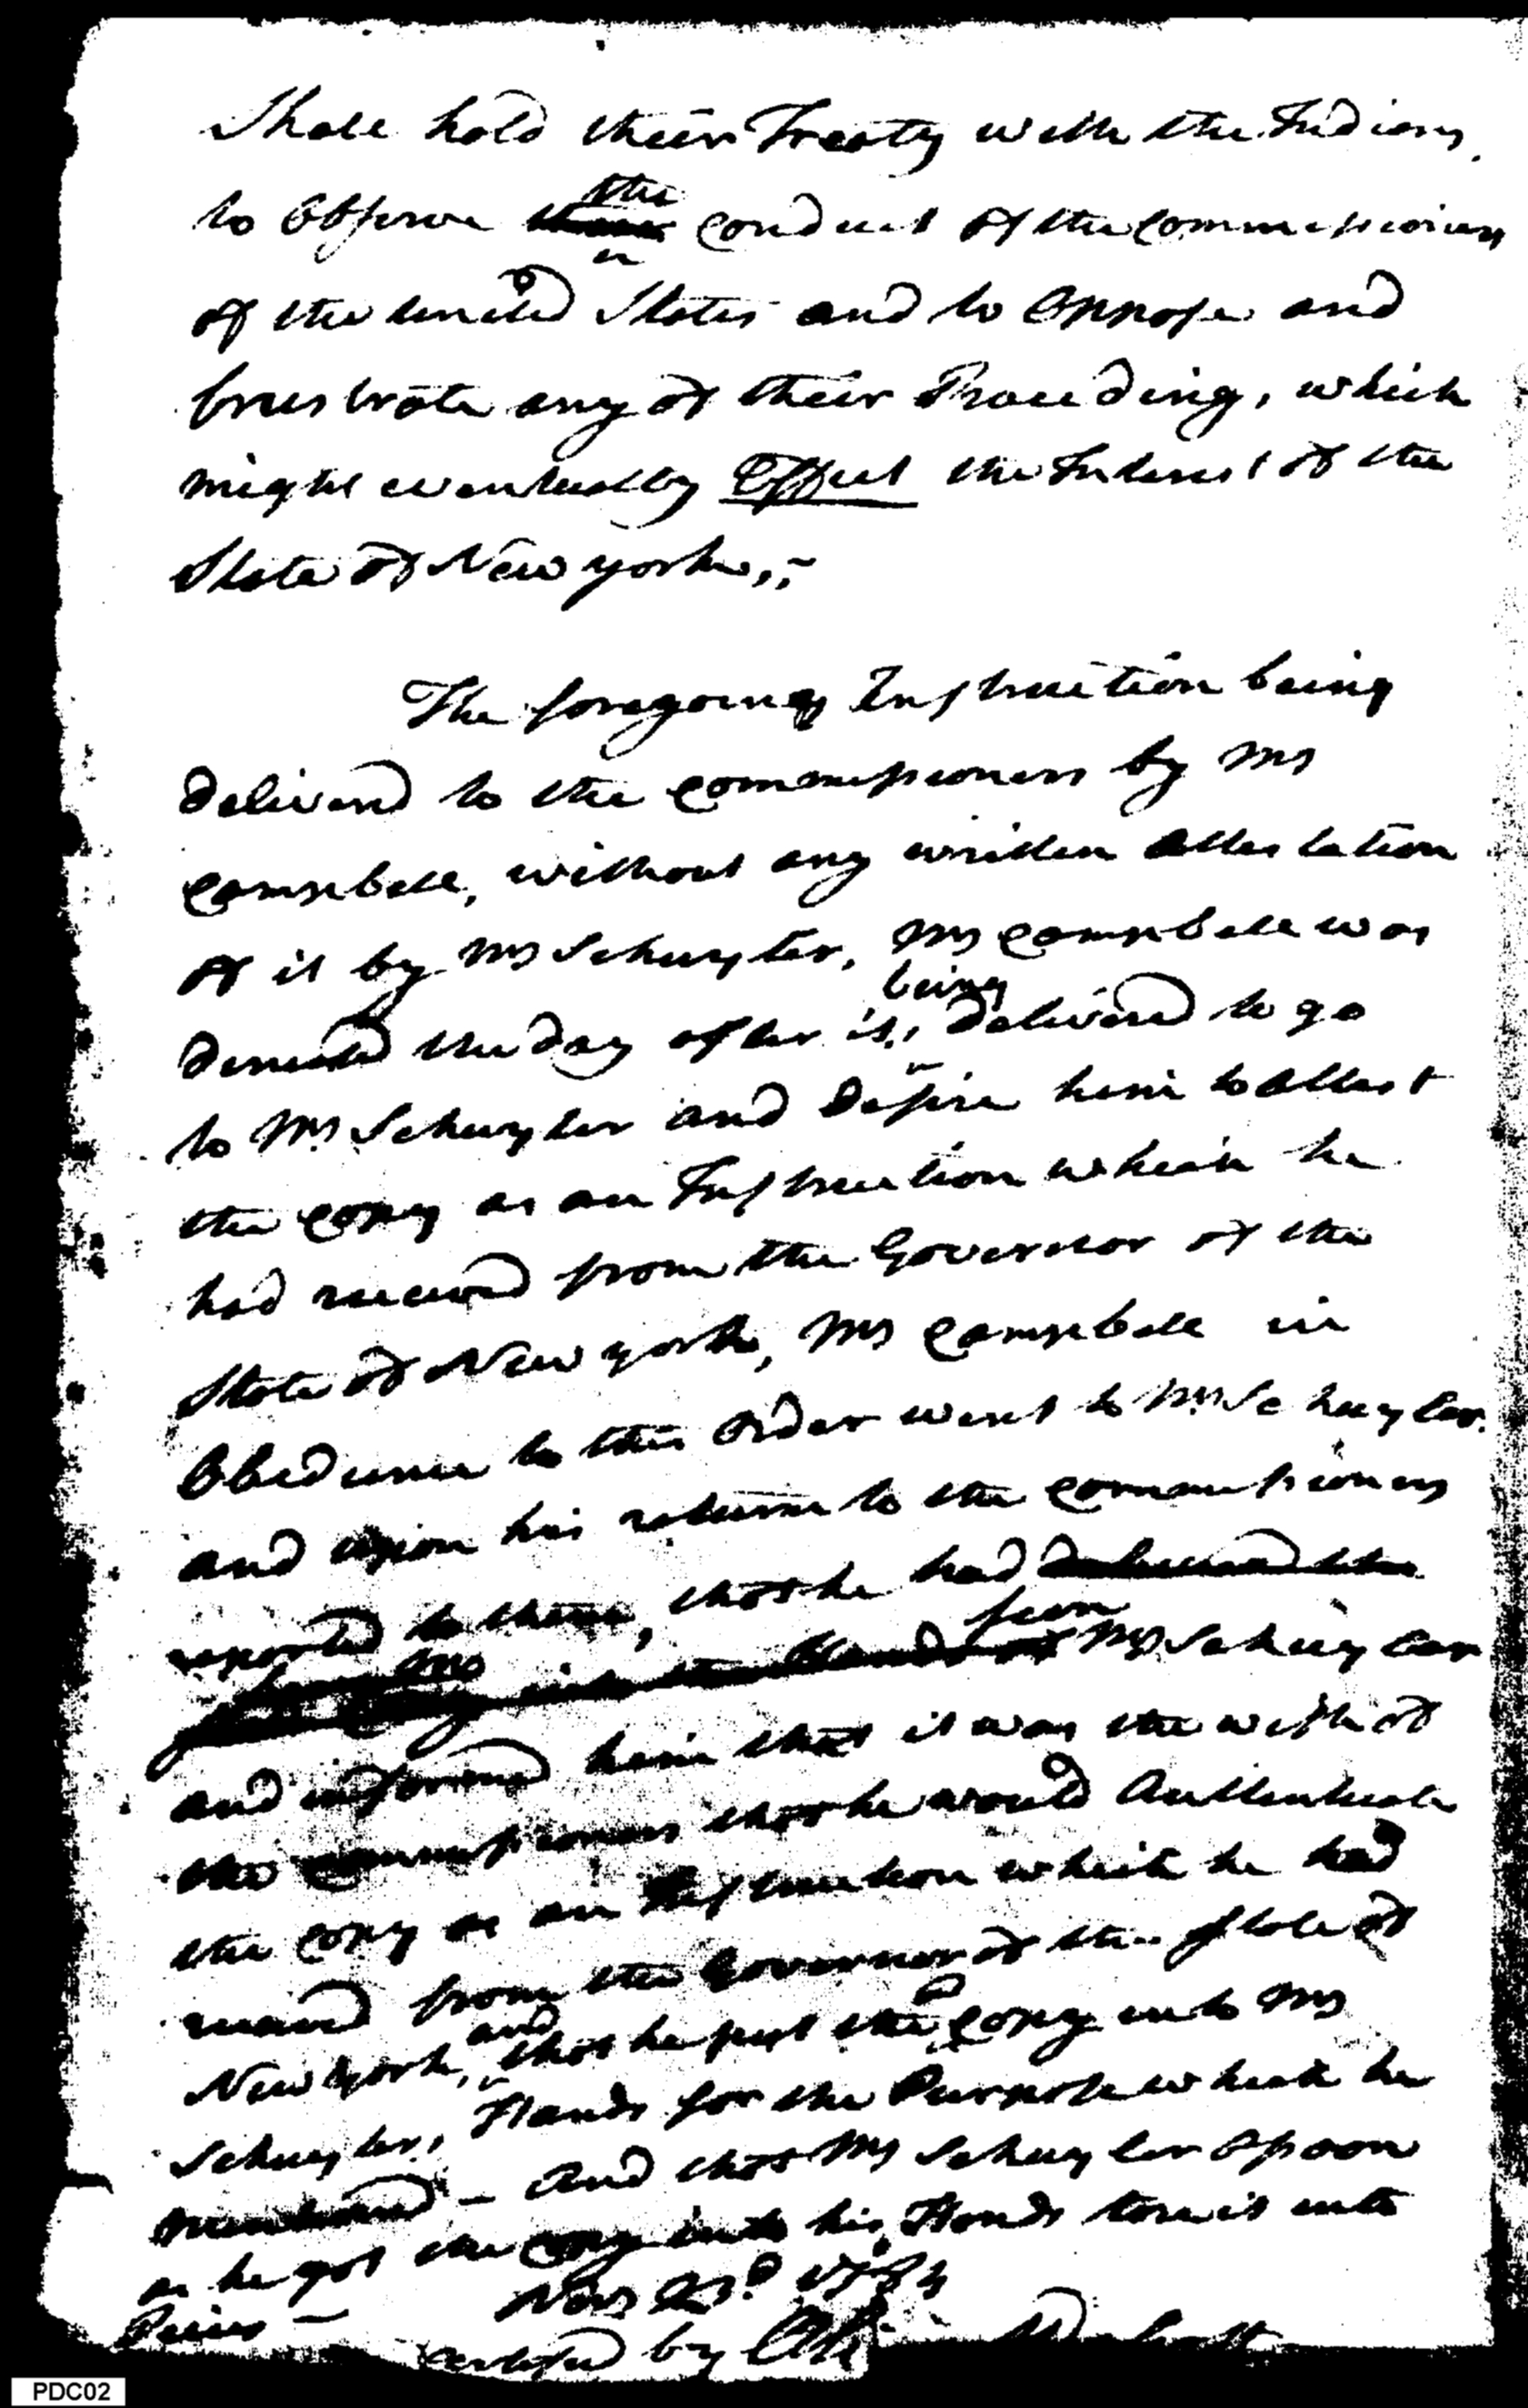 Shall hold their Treaty with the Indians,
to Observe the conduct of the Commissioners
of the United States and to Oppose and
frustrate any of their Proceeding, which
might eventually Effect the Interest of the
State of New york,;-
The foregoing Instruction being
delivered to the Commissioners by Mr
Campbell, without any written Attestation
of it by Mr Schuyler, Mr Campbell was
being
directed the day after it, delivered to go
to Mr Schuyler and desire him to Attest
the Copy as an Instruction which he
had received from the Governor of the
State of New york, Mr Campbell in
Obedience to this Order went to Mr Schuyler.
and upon his return to the Commissioners
reported to them, that he had delivered the
seen
in the Hands of Mr Schuyler
and informed him that it was the wish of
the Commissioners that he would Authenticate
the Copy as an Instruction which he had
received from the Governor of the State of
and
New york, that he put the Copy into Mr
Schuyler, Hands for the Purpose which he
mentioned – And that Mr Schuyler Assoon
as he got the Copy into his Hands tore it into
Peices – Novr 23d 1784
Certified by
PDC02